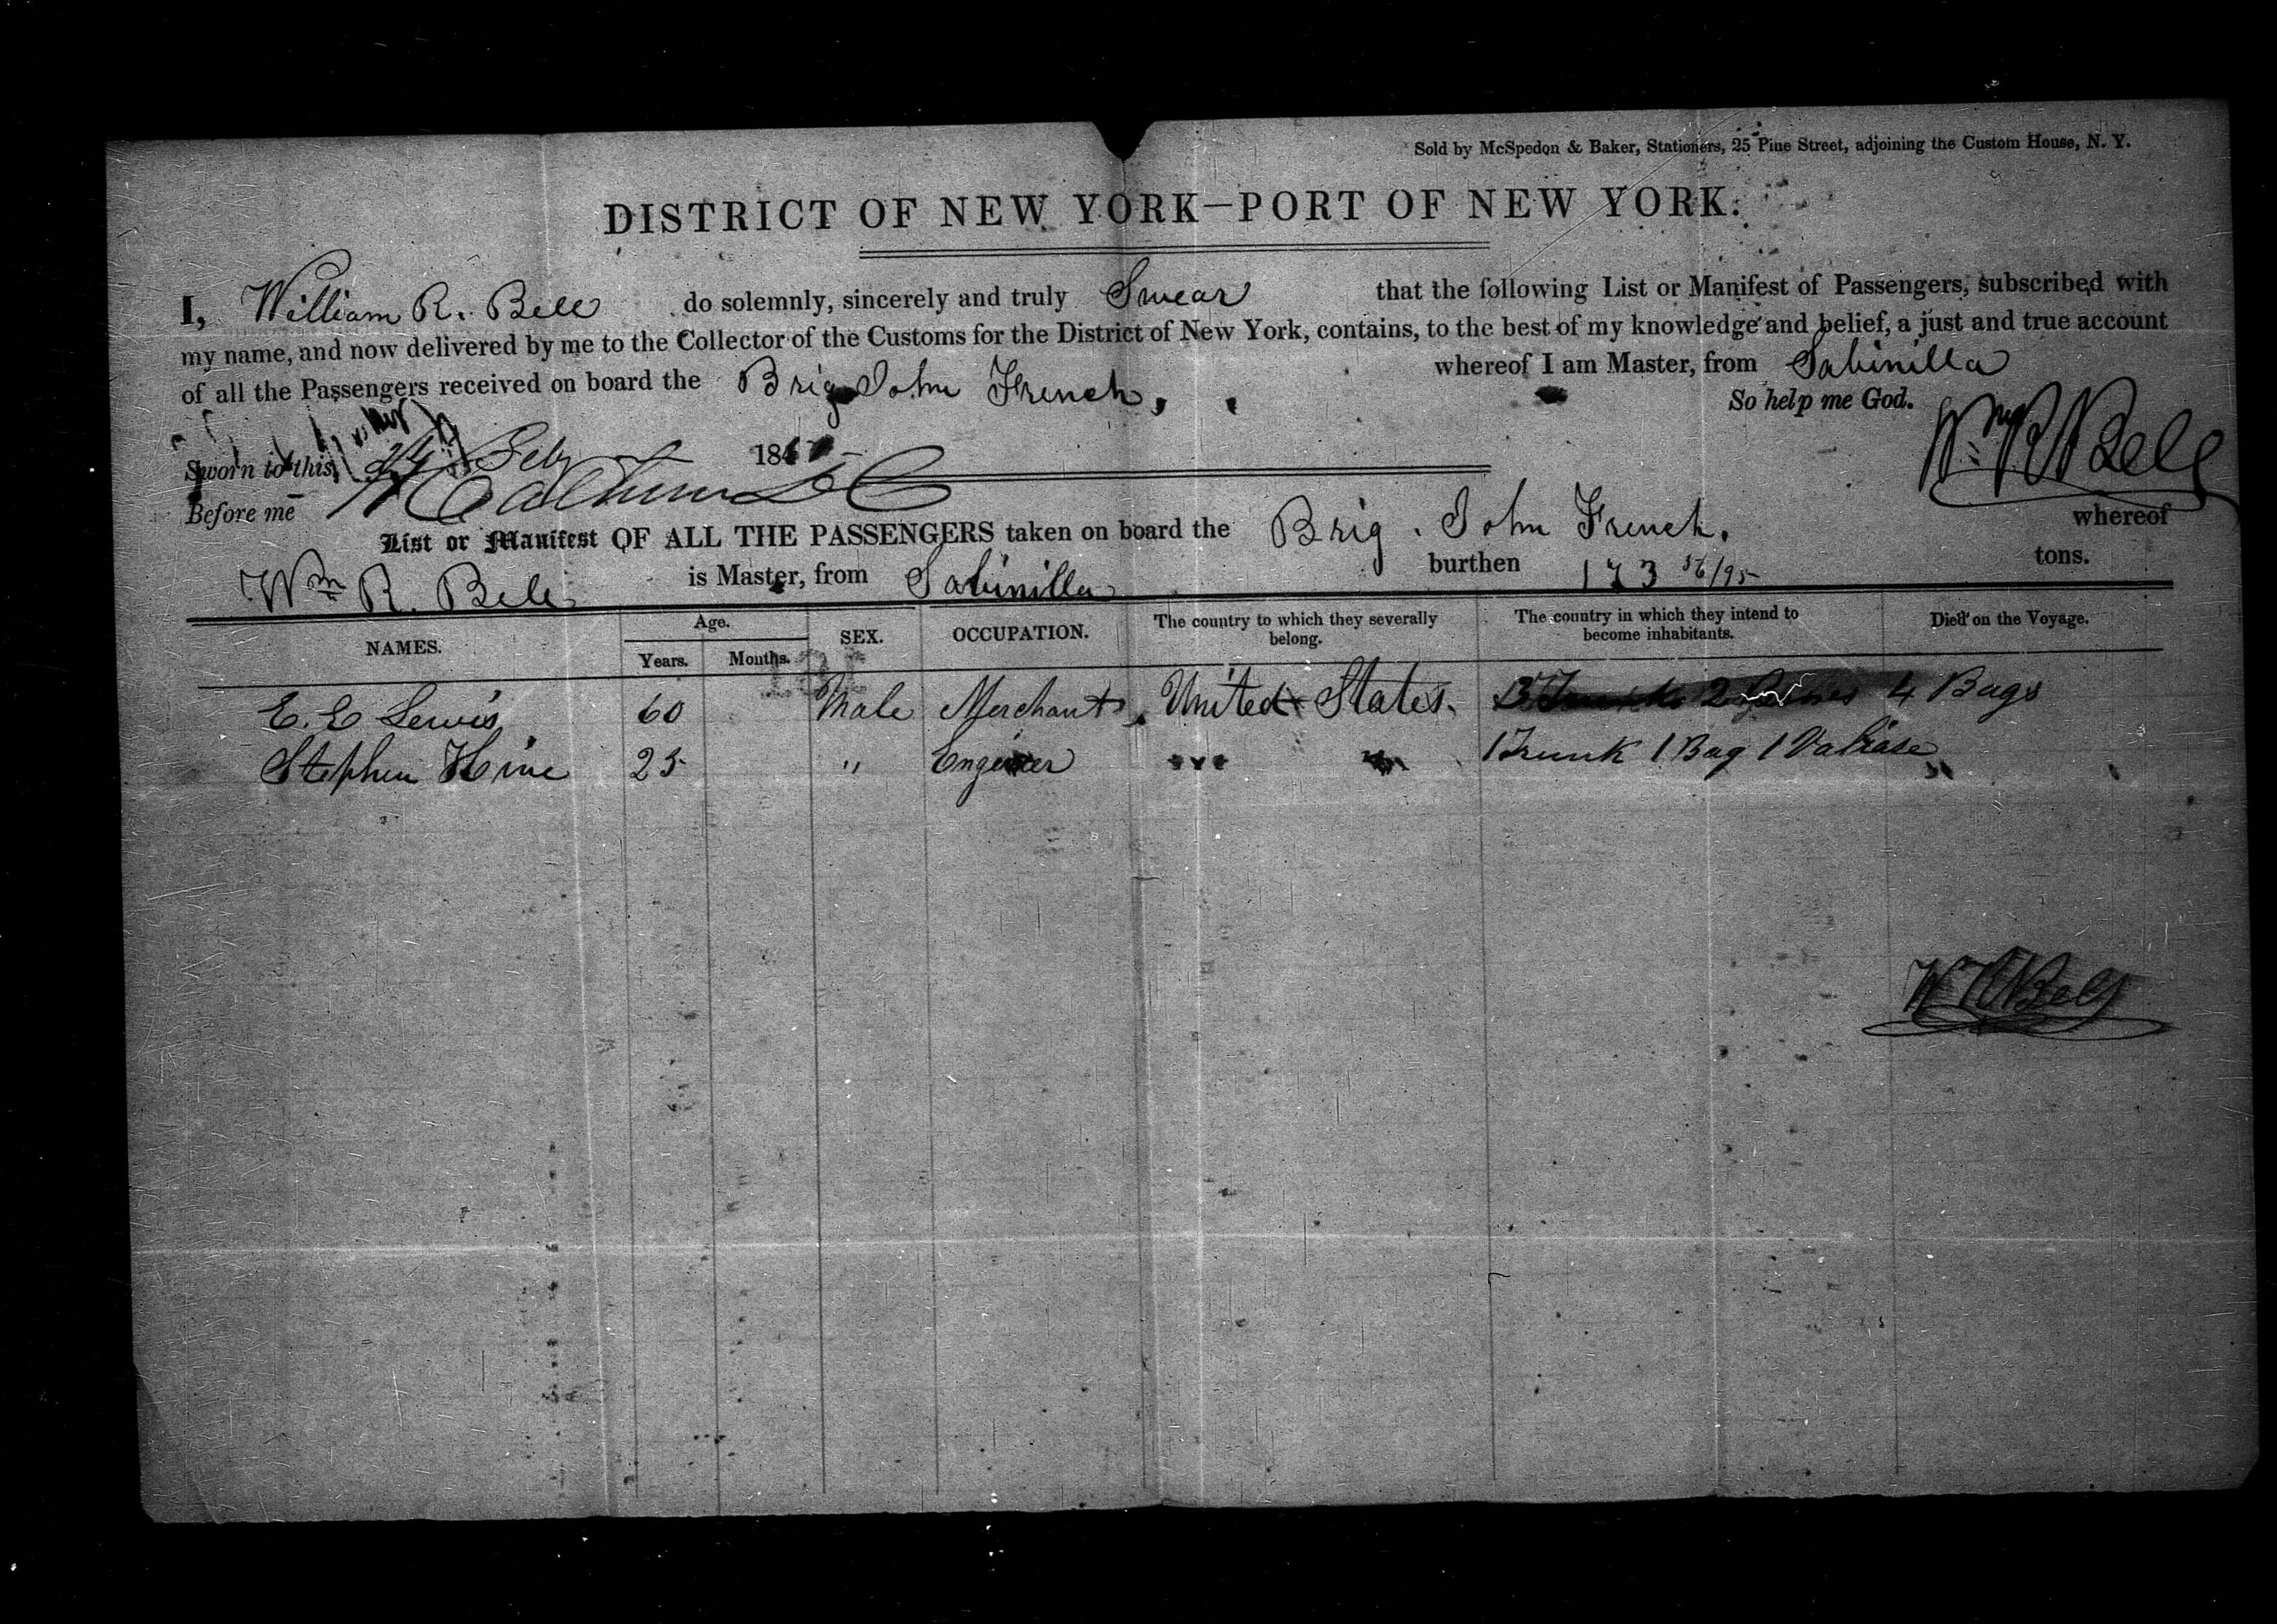 Sold by McSpedon & Baker, Stationers, 25 Pine Street, adjoining the Custom House, N. Y.
DISTRICT OF NEW YORK—PORT OF NEW YORK.
I, William R. Bell do solemnly, sincerely and truly Swear that the following List or Manifest of Passengers, subscribed with
my name, and now delivered by me to the Collector of the Customs for the District of New York, contains, to the best of my knowledge and belief, a just and true account
of all the Passengers received on board the Brig John French, whereof I am Master, from Sabinilla
So help me God.
Sworn to this Feb 18
Wm R Bell
Before me
List or Manifest OF ALL THE PASSENGERS taken on board the Brig. John French. whereof
Wm R. Bell is Master, from Sabinilla burthen 173 56/95 tons.
NAMES. Age. Years. Months. SEX. OCCUPATION. The country to which they severally belong. The country in which they intend to become inhabitants. Died on the Voyage.
E. E Lewis 60 Male Merchant United States. 4 Bags
Stephen Hine 25 " Engineer 1 Trunk 1 Bag 1 Valiase
Wm R Bell